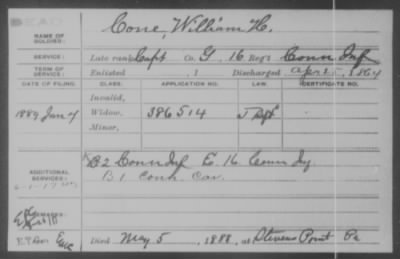 DEAD
NAME OF SOLDIER: Cone, William H.
SERVICE: Late rank Capt Co. G, 16 Reg't Conn Inf
TERM OF SERVICE: Enlisted , 1 Discharged Apr 25, 1864
DATE OF FILING. CLASS. APPLICATION NO. LAW. CERTIFICATE NO.
Invalid,
1889 Jan 7 Widow, 386514
Minor,
ADDITIONAL SERVICES: B 2 Conn Inf E. 16 Conn Inf
B 1 Conn. Cav.
REMARKS:
Died May 5, 1888, at Stevens Point Pa